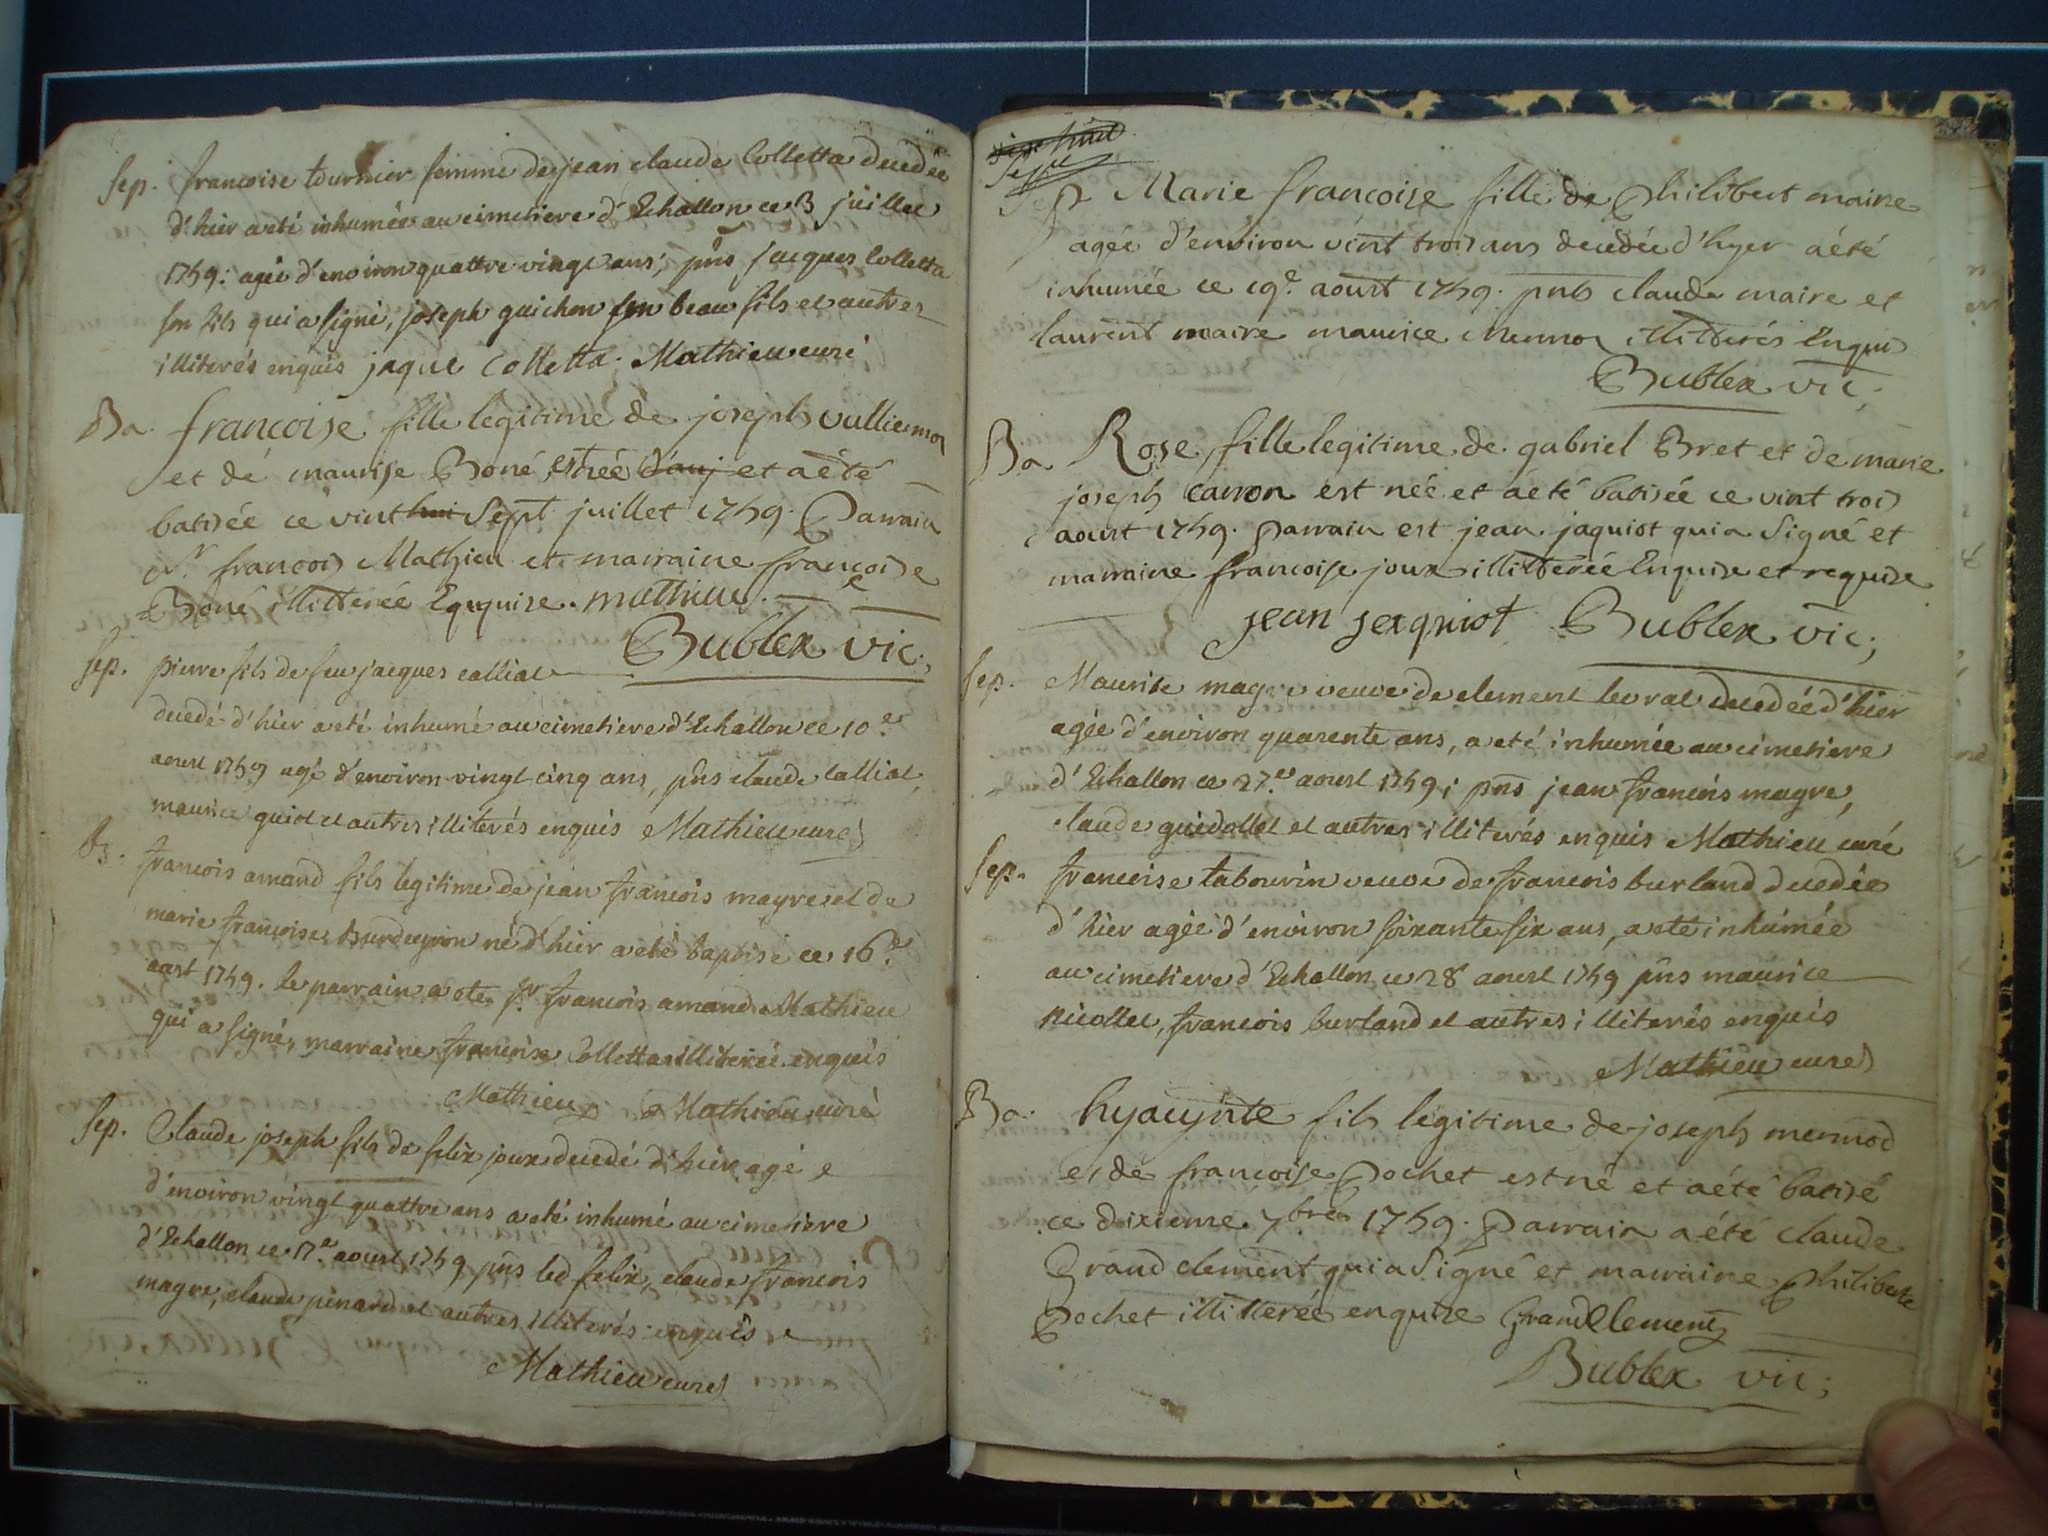 Sep. francoise tournier femme de jean claude Colletta decedée
d'hier a eté inhumée au cimetiere d'Echallon ce 3 juillet
1759: agée d'environ quattre vingt ans; pns jacques Colletta
son fils qui a signé, joseph guichon son beau fils et autres
illiterés enquis jaque Colletta. Mathieu curé
Ba. francoise fille legitime de joseph vulliermoz
et de maurise Boné est née et a été
batisée ce vint Sept juillet 1759. Parrain
Sr. francois Mathieu et marraine francoise
Boné illitterée Enquise. mathieu.
Bublex vic.
Sep. pierre fils de feu jacques calliat
decedé d'hier a eté inhumé au cimetiere d'Echallon ce 10.e
aoust 1759 agé d'environ vingt cinq ans, pns claude calliat,
maurice guiot et autres illiterés enquis Mathieu curé
B. francois amand fils legitime de jean francois magre et de
marie francoise Burdeyron né d'hier a eté baptisé ce 16.e
aost 1759. le parrain a ete sr francois amand Mathieu
qui a signé, marraine francoise Colletta illiterée enquis
Mathieu Mathieu curé
Sep. Claude joseph fils de felix joux decedé d'hier agé
d'environ vingt quattre ans a eté inhumé au cimetiere
d'Echallon ce 17.e aoust 1759 pns led felix, claude francois
magre, claude pinard et autres illiterés enquis
Mathieu curé
Sep Marie francoise fille de Philibert maire
agée d'environ vint trois ans decedée d'hyer a été
inhumée ce 19e. aoust 1759. pnts claude maire et
laurent maire maurice Mermoz illitterés Enquis
Bublex vic;
Ba. Rose fille legitime de gabriel Bret et de marie
joseph carron est née et a eté batisée ce vint trois
aoust 1759. Parrain est jean jaquiot qui a Signé et
marraine francoise joux illitterée Enquise et requise
jean jerquiot Bublex vic;
Sep. Maurise magre veuve de clement levrat decedée d'hier
agée d'environ quarente ans, a eté inhumée au cimetiere
d'Echallon ce 27.e aoust 1759; pns jean francois magre,
claude guidollet et autres illiterés enquis Mathieu curé
Sep. francoise tabourin veuve de francois burland decedée
d'hier agée d'environ soixante six ans, a eté inhumée
au cimetiere d'Echallon ce 28 aoust 1759 pns maurice
Nicollet, francois burland et autres illiterés enquis
Mathieu curé
Ba. hyacynte fils legitime de joseph mermod
et de francoise Pochet est né et a été batisé
ce dixieme 7bre 1759. Parrain a été claude
Grand clement qui a Signé et marraine Philiberte
Pochet illitterée enquise GrandClement
Bublex vic;